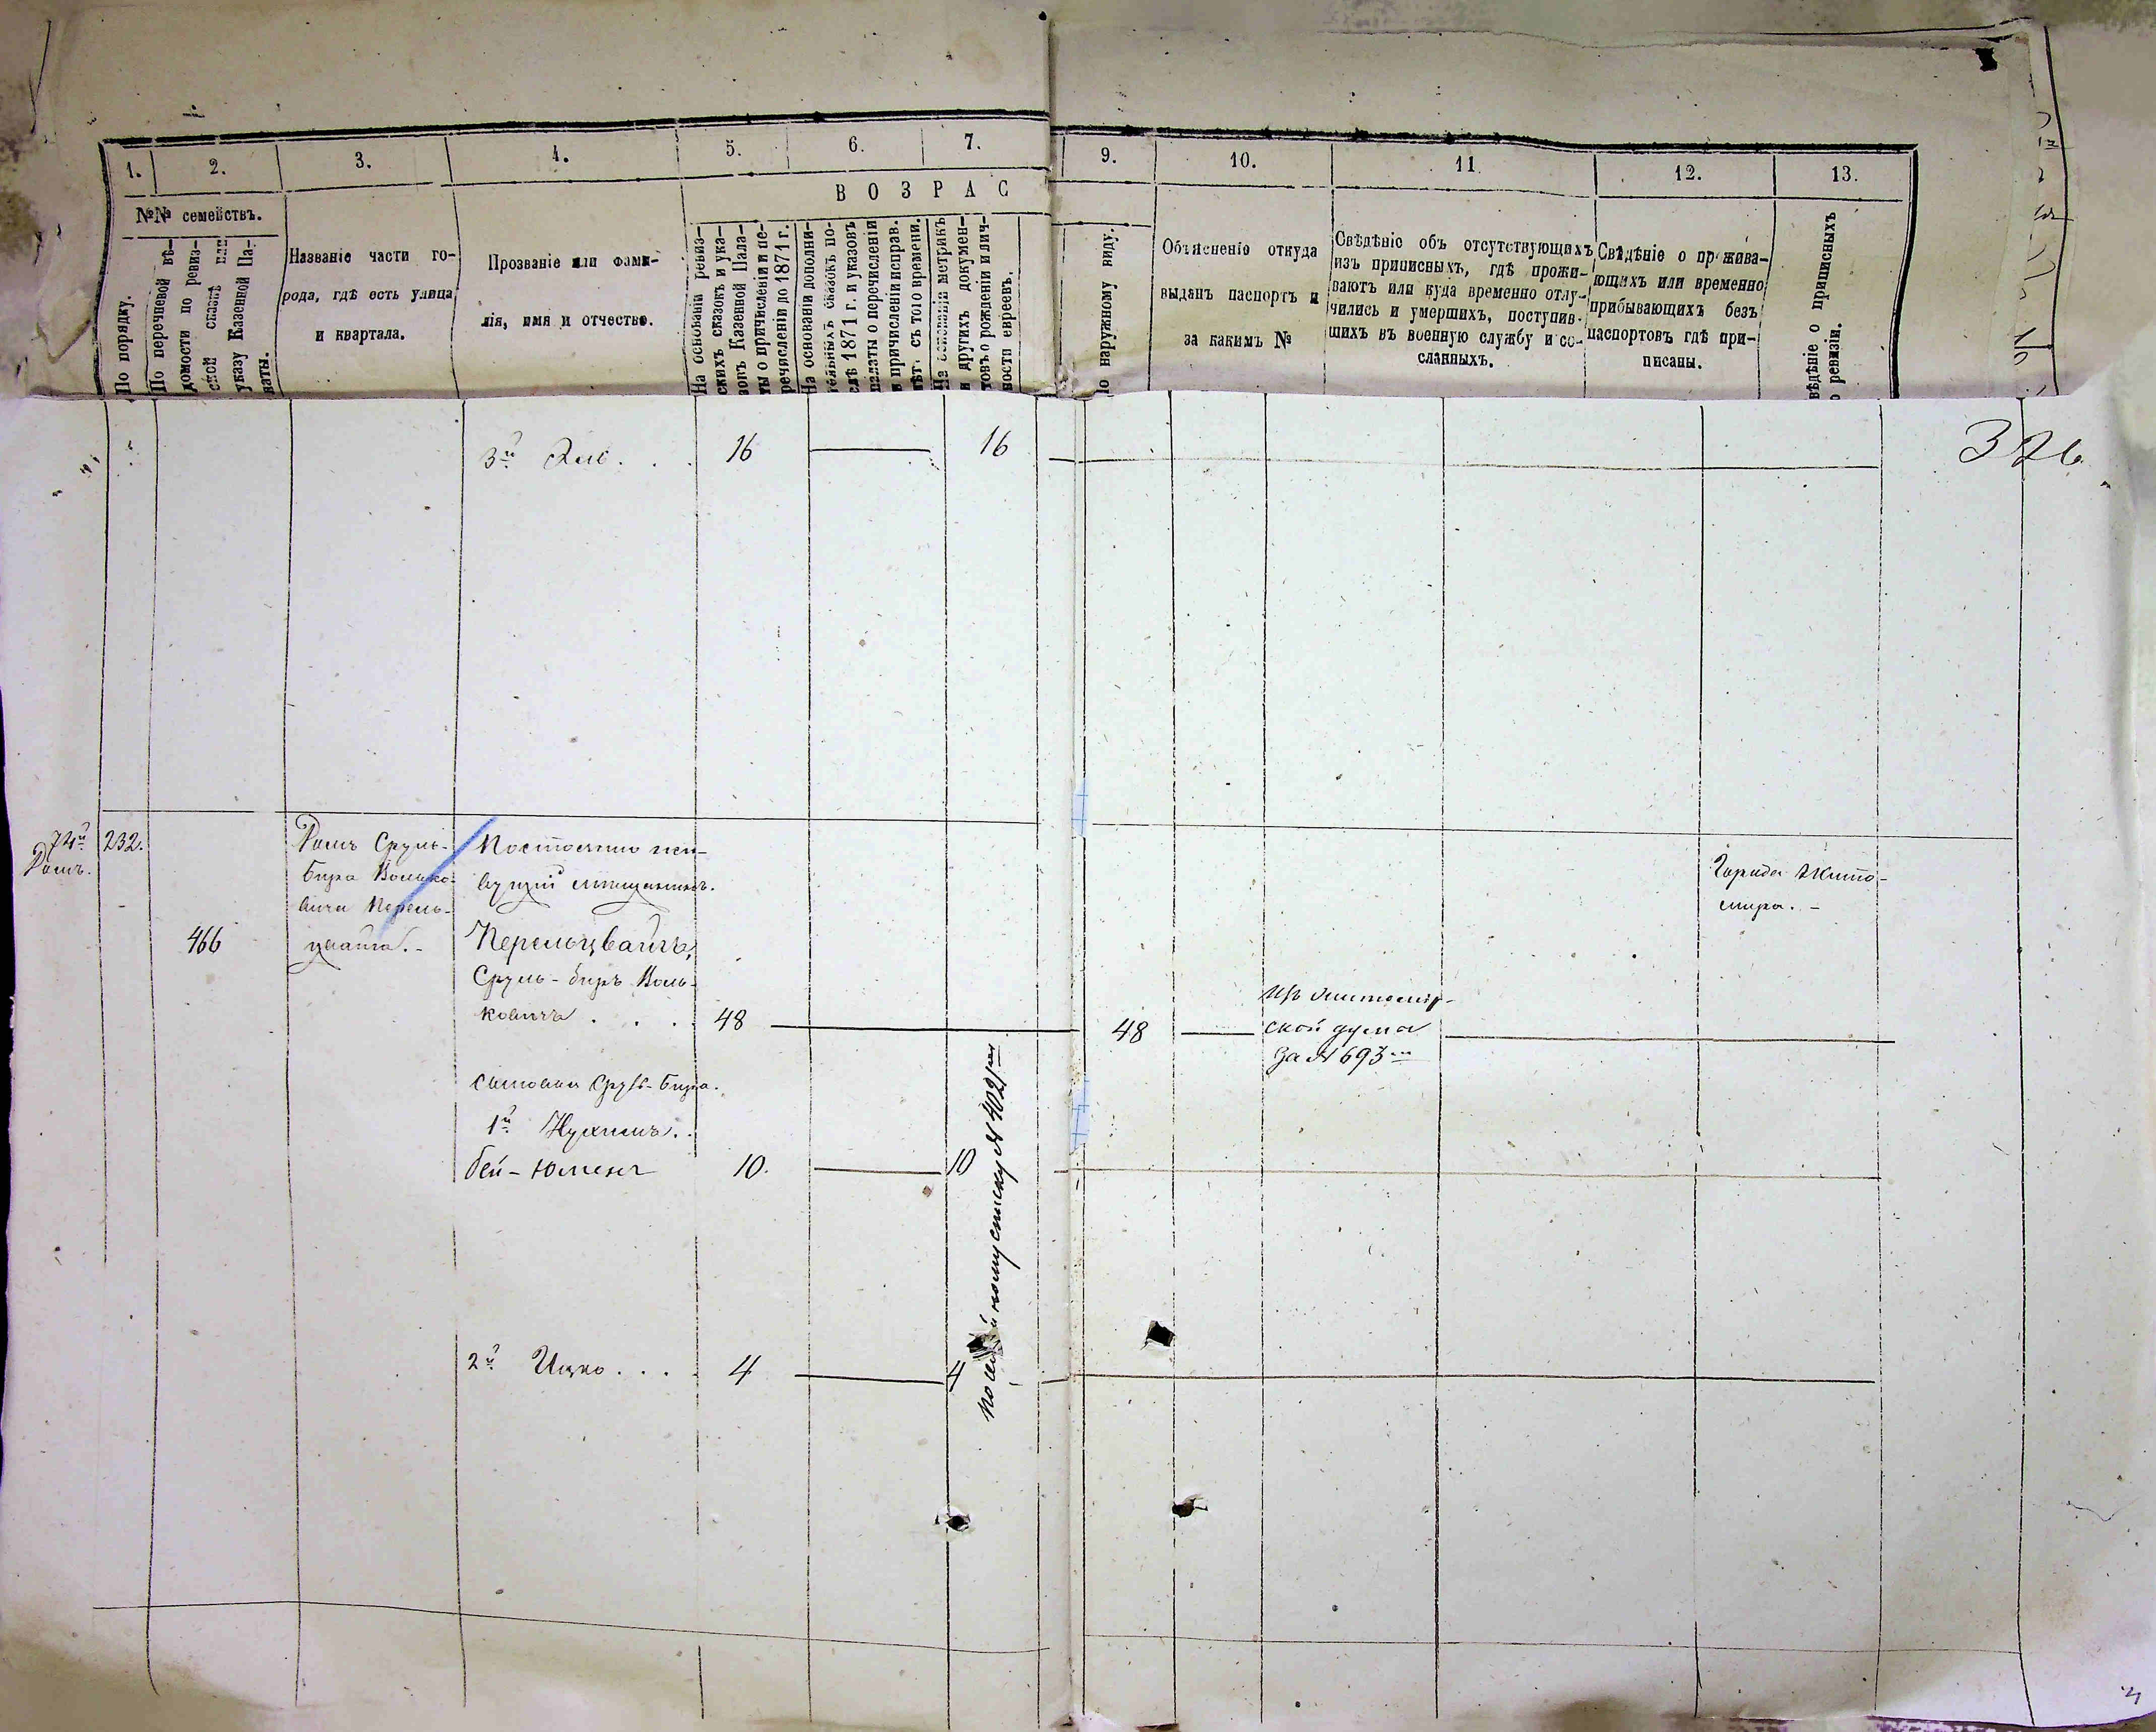 1.
2.
3.
4.
5.
6.
7.
9.
10.
11.
12.
13.
№№ семействъ.
В О З Р А С
По порядку.
По перечневой вѣ-
домости по ревиз-
ской сказкѣ или
указу Казенной Па-
латы.
Названіе части го-
рода, гдѣ есть улица
и квартала.
Прозваніе или фами-
лія, имя и отчество.
На основаніи ревиз-
скихъ сказокъ и ука-
зовъ Казенной Пала-
ты о причисленіи и пе-
речисленіи до 1871 г.
На основаніи дополни-
тельныхъ сказокъ по-
слѣ 1871 г. и указовъ
палаты о перечисленіи
и причисленіи исправ.
лѣт. съ того времени.
На основаніи метрикъ
и другихъ докумен-
товъ о рожденіи и лич-
ности евреевъ.
По наружному виду.
Объясненіе откуда
выданъ паспортъ и
за какимъ №
Свѣдѣніе объ отсутствующихъ
изъ приписныхъ, гдѣ прожи-
ваютъ или куда временно отлу-
чились и умершихъ, поступив-
шихъ въ военную службу и со-
сланныхъ.
Свѣдѣніе о прожива-
ющихъ или временно
прибывающихъ безъ
паспортовъ гдѣ при-
писаны.
вѣдѣніе о приписныхъ
о ревизіи.
3й
16
16
326
74й
Домъ.
232.
466
Домъ Сруль-
Бира Волько-
вича Перель-
цвайга.-
Постоянно жи-
вущій мѣщанинъ.
Перельцвайгъ,
Сруль-биръ Воль-
ковичъ . . .
48
48
Изъ Житомир-
ской думы
за № 693м
Города Жито-
мира. -
сыновья Сруль-Бира.
1й Нухимъ. .
бей-Юменъ
10.
10
2й Ицко. . . .
4
4
по списку № 402